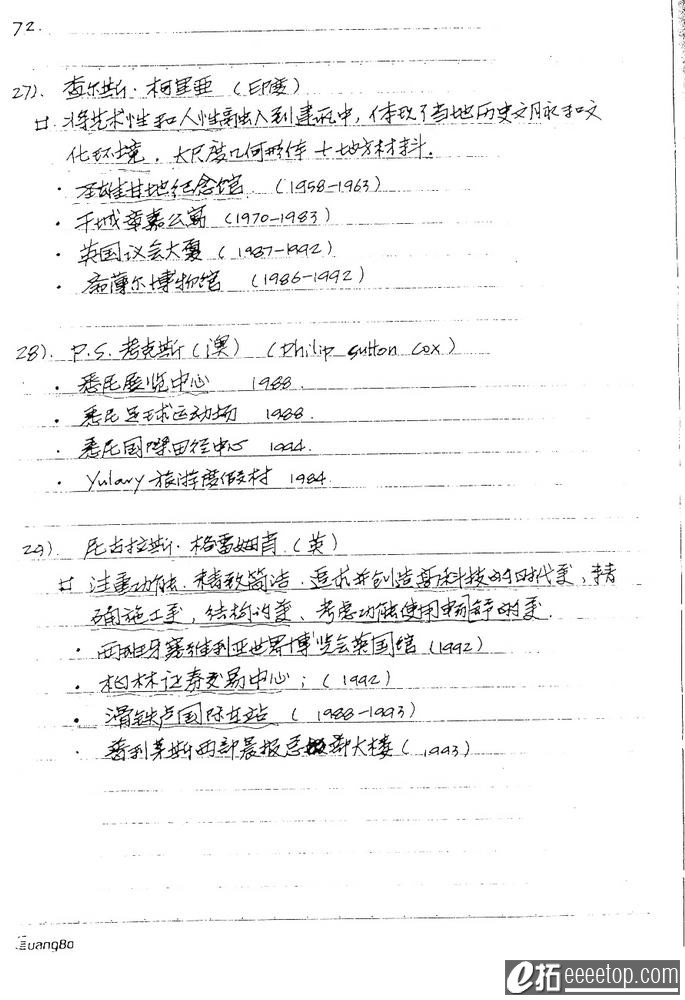 72.
27). 查尔斯·柯里亚 (印度)
将艺术性和人性融入到建筑中, 体现了当地历史文脉和文
化环境, 大尺度几何形体+地方材料.
· 圣雄甘地纪念馆 (1958-1963)
· 干城章嘉公寓 (1970-1983)
· 英国议会大厦 (1987-1992)
· 斋蒲尔博物馆 (1986-1992)
28). P.S. 考克斯 (澳) (Philip Sutton Cox)
· 悉尼展览中心 1988.
· 悉尼足球运动场 1988.
· 悉尼国际田径中心 1994.
· Yulary旅游度假村 1984
29). 尼古拉斯·格雷姆肖 (英)
注重功能、精致简洁、追求并创造高科技的时代美, 精
确施工美, 结构的美、考虑功能使用畅舒的美.
· 西班牙塞维利亚世界博览会英国馆 (1992)
· 柏林证券交易中心; (1992)
· 滑铁卢国际车站 (1988-1993)
· 普利茅斯西部晨报总部大楼 (1993)
GuangBo
e拓 eeeetop.com